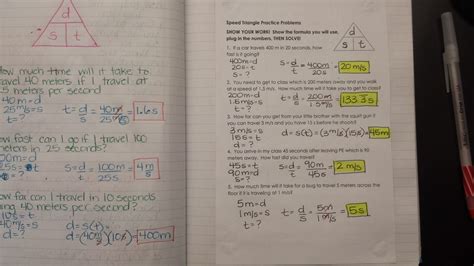 d
s t
How much time will it take to
travel 40 meters if I travel at
25 meters per second
40m=d
25m/s=s t=d/s=40m/25m/s=1.6s
t=?
How fast can I go if I travel 100
meters in 25 seconds?
100m=d
25s=t s=d/t=100m/25s=4m/s
s=?
How far can I travel in 10 seconds
going 40 meters per second?
10s=t d=s(t)=
d=? d=(40m/s)(10s)=400m
Speed Triangle Practice Problems
SHOW YOUR WORK! Show the formula you will use,
plug in the numbers, THEN SOLVE!
d
s t
1. If a car travels 400 m in 20 seconds, how
fast is it going?
400m=d
20s=t s=d/t=400m/20s=20m/s
s=?
2. You need to get to class which is 200 meters away and you walk
at a speed of 1.5 m/s. How much time will it take you to get to class?
200m=d
1.5m/s=s t=d/s=200m/1.5m/s=133.3s
t=?
3. How far can you get from your little brother with the squirt gun if
you can travel 3 m/s and you have 15 s before he shoots?
3m/s=s
15s=t d=s(t)=(3m/s)15s=45m
d=?
4. You arrive in my class 45 seconds after leaving PE which is 90
meters away. How fast did you travel?
45s=t s=d/t=90m/45s=2m/s
90m=d
s=?
5. How much time will it take for a bug to travel 5 meters across the
floor if it is traveling at 1 m/s?
5m=d
1m/s=s t=d/s=5m/1m/s=5s
t=?